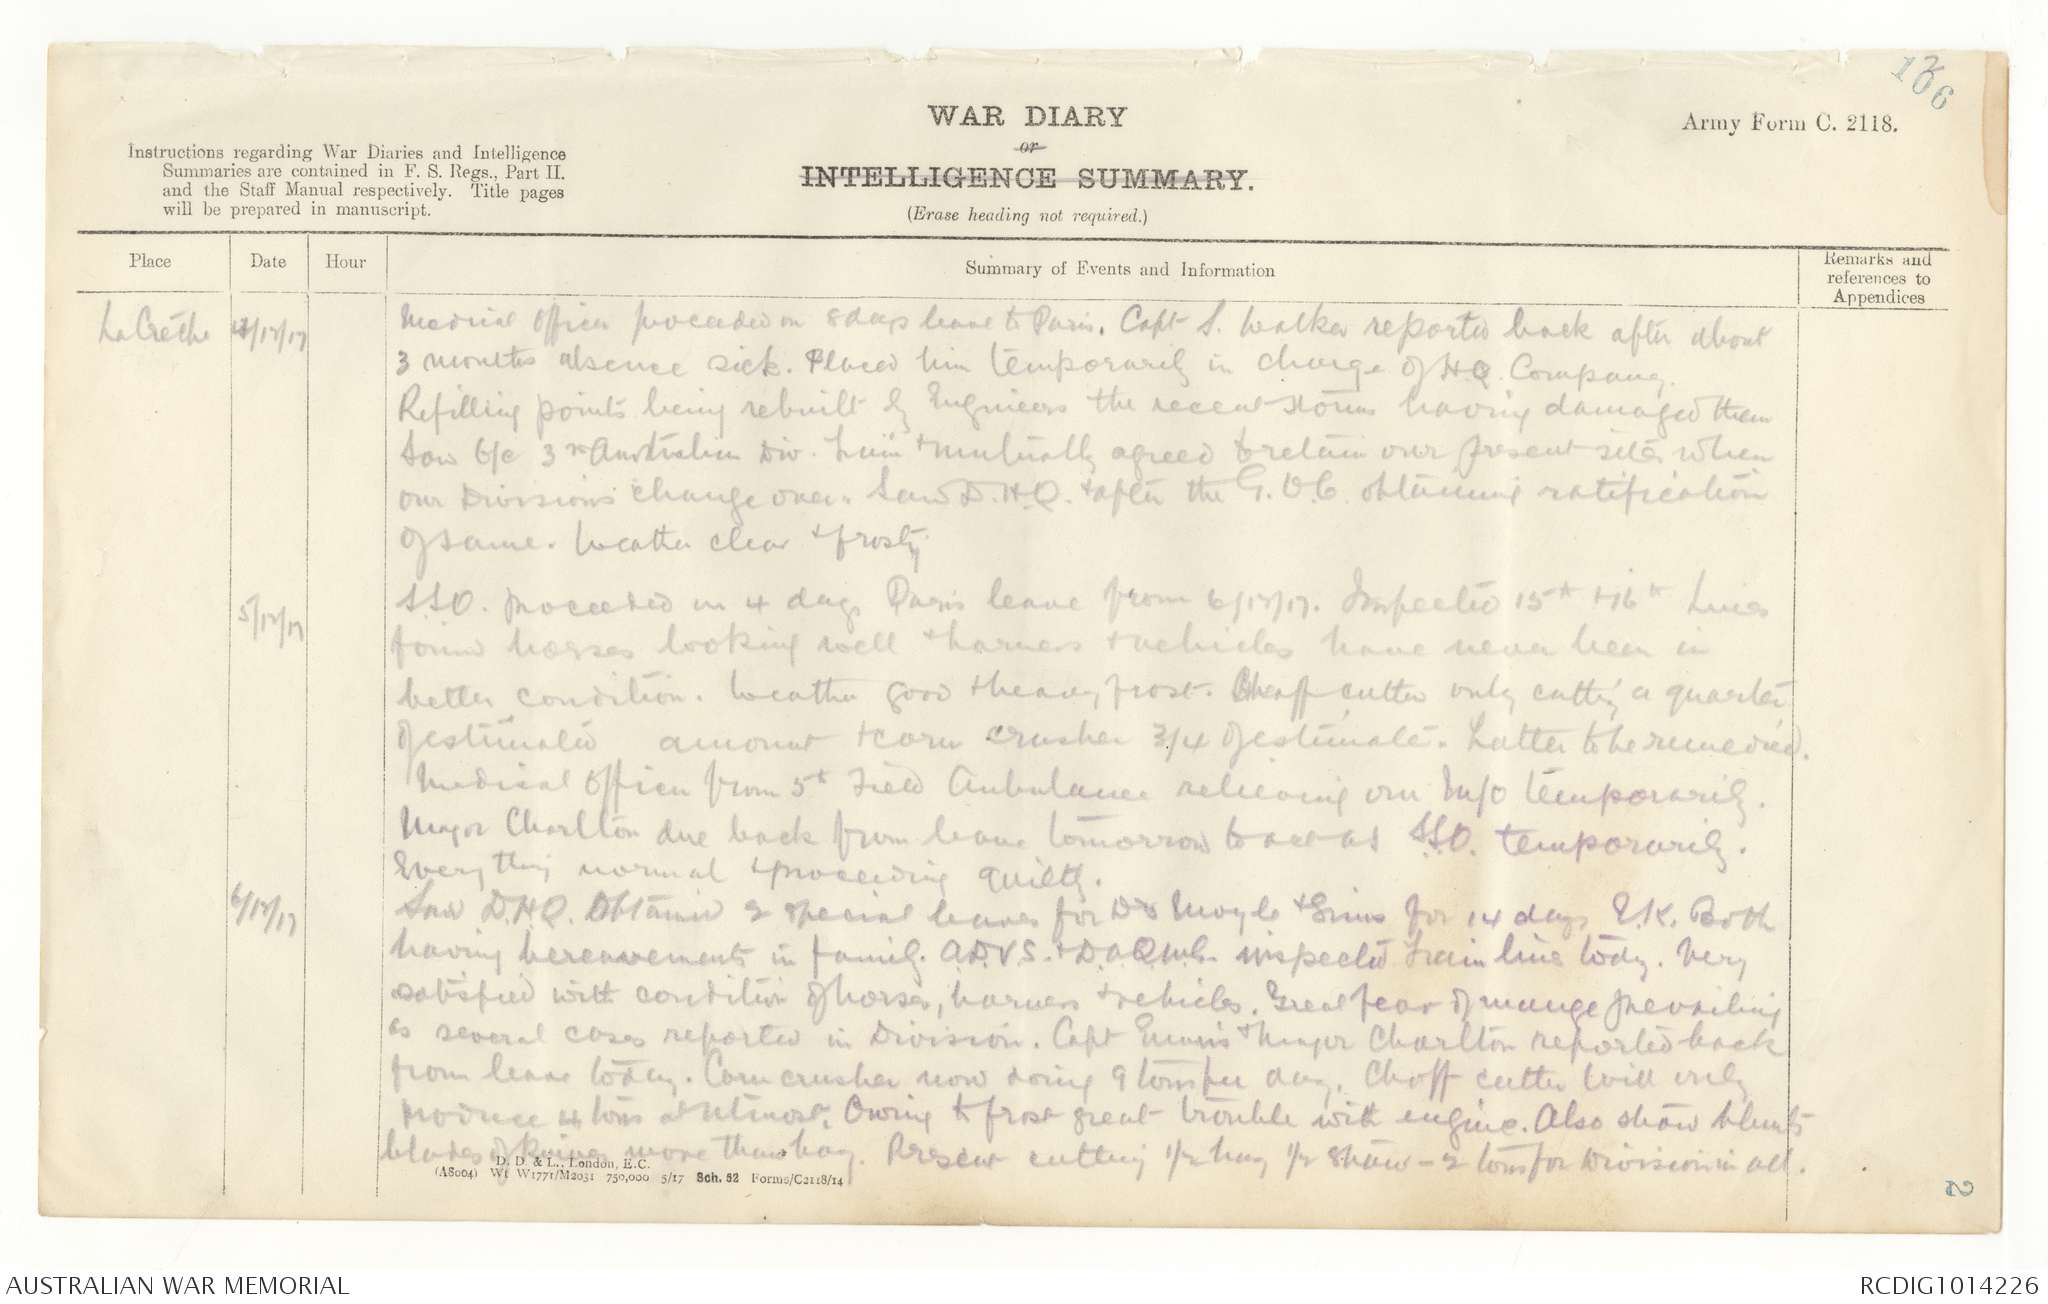 106
2
WAR DIARY
or
INTELLIGENCE SUMMARY.
(Erase heading not required.)
Army Form C. 2118.
Instructions regarding War Diaries and Intelligence
Summaries are contained in F. S. Regs., Part II.
and the Staff Manual respectively. Title pages
will be prepared in manuscript.
Place Date Hour Summary of Events and Information Remarks and
references to
Appendices
La Crèche 4/12/17 Medical Officer proceeded on 8 days leave to Paris. Capt S. Walker reported back after about
3 months absence sick. Placed him temporarily in charge of H.Q. Company.
Refilling points being rebuilt by Engineers the recent storms having damaged them
Saw O/C 3rd Australian Div. Train & mutually agreed to retain our present sites when
our Divisions change over. Saw D.H.Q. & after the G.O.C. obtaining ratification
of same. Weather clear & frosty
5/12/17 S.S.O. proceeded on 4 days Paris leave from 6/12/17. Inspected 15th & 16th Lines
found horses looking well & harness & vehicles have never been in
better condition. Weather good & heavy frost. Chaff cutter only cutting a quarter
of estimated amount & corn crusher 3/4 of estimate. Latter to be remedied.
Medical Officer from 5th Field Ambulance relieving our M/O temporarily.
Major Charlton due back from leave tomorrow to act as S.S.O. temporarily.
Everything normal & proceeding quietly.
6/12/17 Saw D.H.Q. Obtained 2 special leaves for Drs Moyle & Sims for 14 days U.K. Both
having bereavements in family. A.D.V.S. & D.A.Q.M.G. inspected Train lines today. Very
satisfied with condition of horses, harness & vehicles. Great fear of mange prevailing
as several cases reported in Division. Capt & Major Charlton reported back
from leave today. Corn crusher now doing 9 tons per day. Chaff cutter will only
produce 4 tons at utmost. Owing to frost great trouble with engine. Also straw blunts
blades of knives more than hay. Present cutting 1/2 hay 1/2 straw - 2 tons for Division in all.
D. D. & L., London, E.C.
(A8004) Wt W1771/M2031 750,000 5/17 Sch. 52 Forms/C2118/14
AUSTRALIAN WAR MEMORIAL
RCDIG1014226